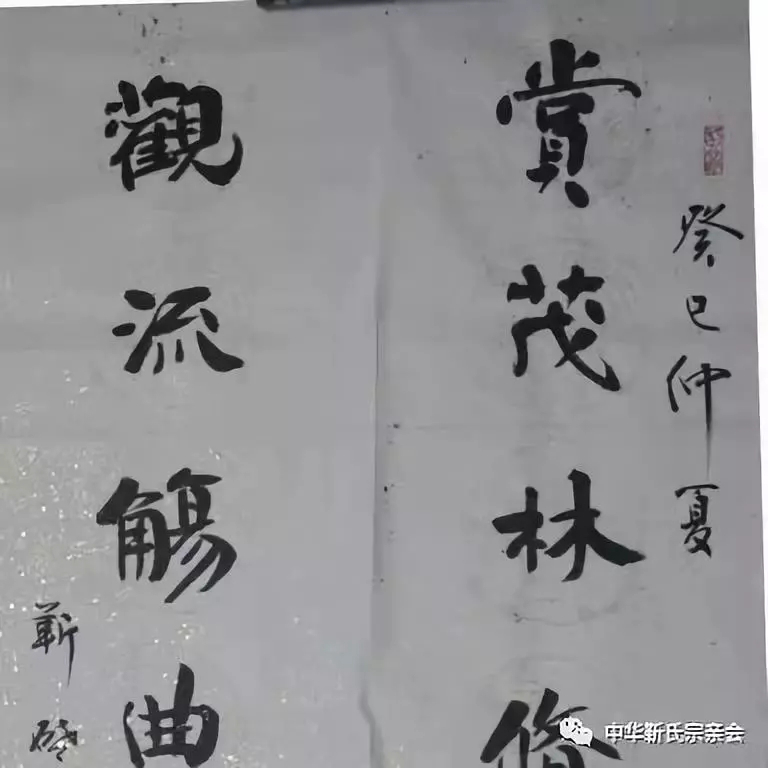 癸巳仲夏
賞茂林修
觀流觴曲
靳
中华靳氏宗亲会